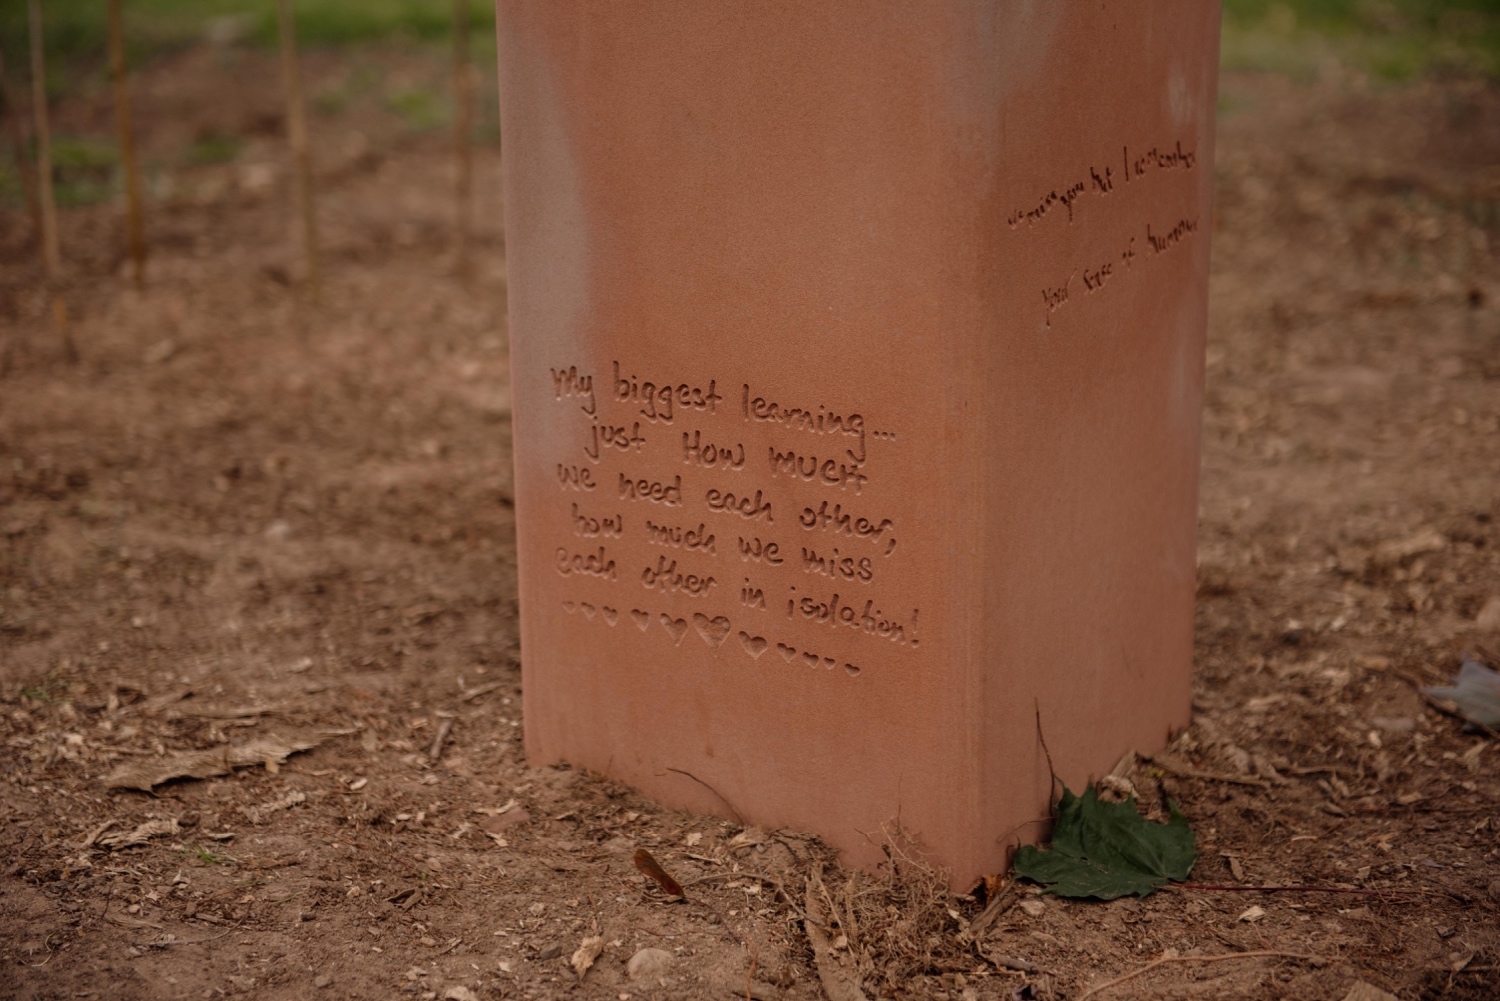 My biggest learning...
just How much
we need each other,
how much we miss
each other in isolation!
we miss you but I remember
your sense of humour